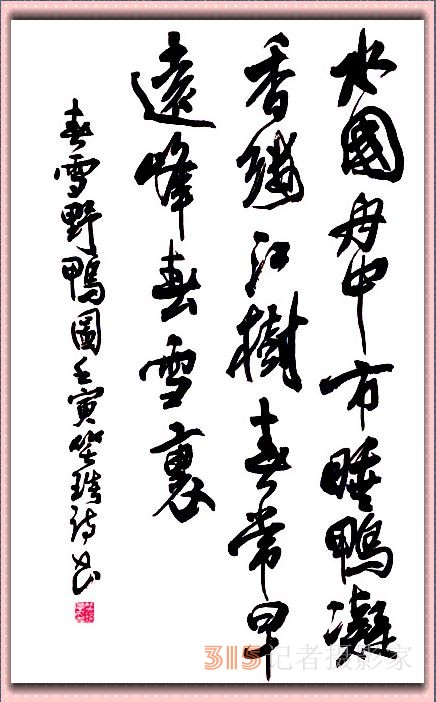 水國舟中市睡鴨凝
香繞江樹春常早
遠峰春雪裏
春雪野鴨圖壬寅詩書
315记者摄影家